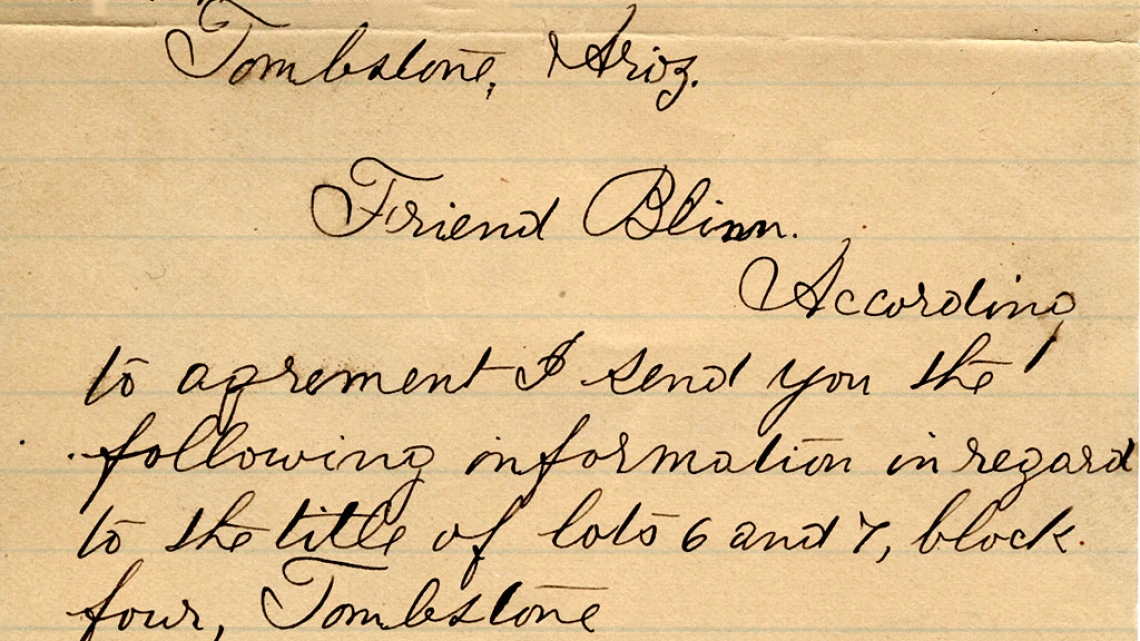 Tombstone, Ariz.
Friend Blinn.
According
to agrement I send you the
following information in regard
to the title of lots 6 and 7, block
four, Tombstone